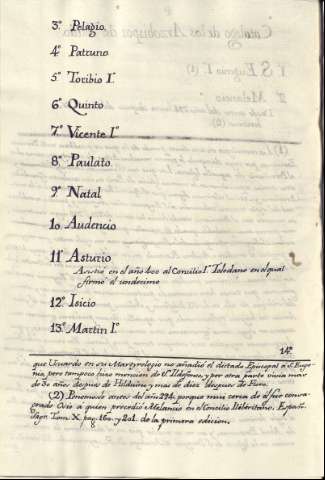 3º Pelagio.
4º Patruno.
5º Toribio Iº
6º Quinto
7º Vicente Iº
8º Paulato.
9º Natal
10 Audencio
11º Asturio
Asistió en el año 400 al Concilio Iº Toledano en el qual
firmó el undecimo
12º Isicio
13º Martin Iº
14º
que Usuardo en su Martyrologio no añadió el dictado Episcopal á S. Euge-
nia, pero tampoco hizo mencion de S. Ildefonso, y por otra parte vivia mas
de 30 años despues de Hilduino y mas de diez despues de Floro.
(2) Ponemosle antes del año 294. porque mui cerca de el fue consa-
grado Osio á quien precedió Melancio en el Concilio Iliberitano. España
Sagr. Tom. X. pag. 160. y 201. de la primera edicion.